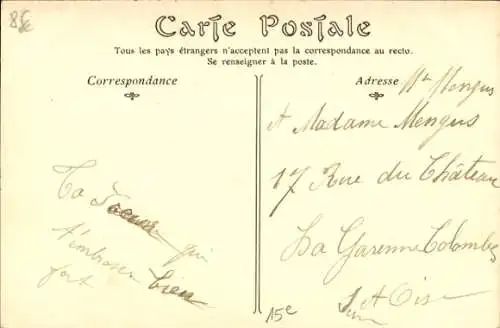 8€
Carte Postale
Tous les pays étrangers n'acceptent pas la correspondance au recto.
Se renseigner à la poste.
Correspondance
Adresse
Mengus
A Madame Mengus
17 Rue du Château
La Garenne Colombes
S et Oise
Ta Soeur qui
t'embrasse bien
fort
15e